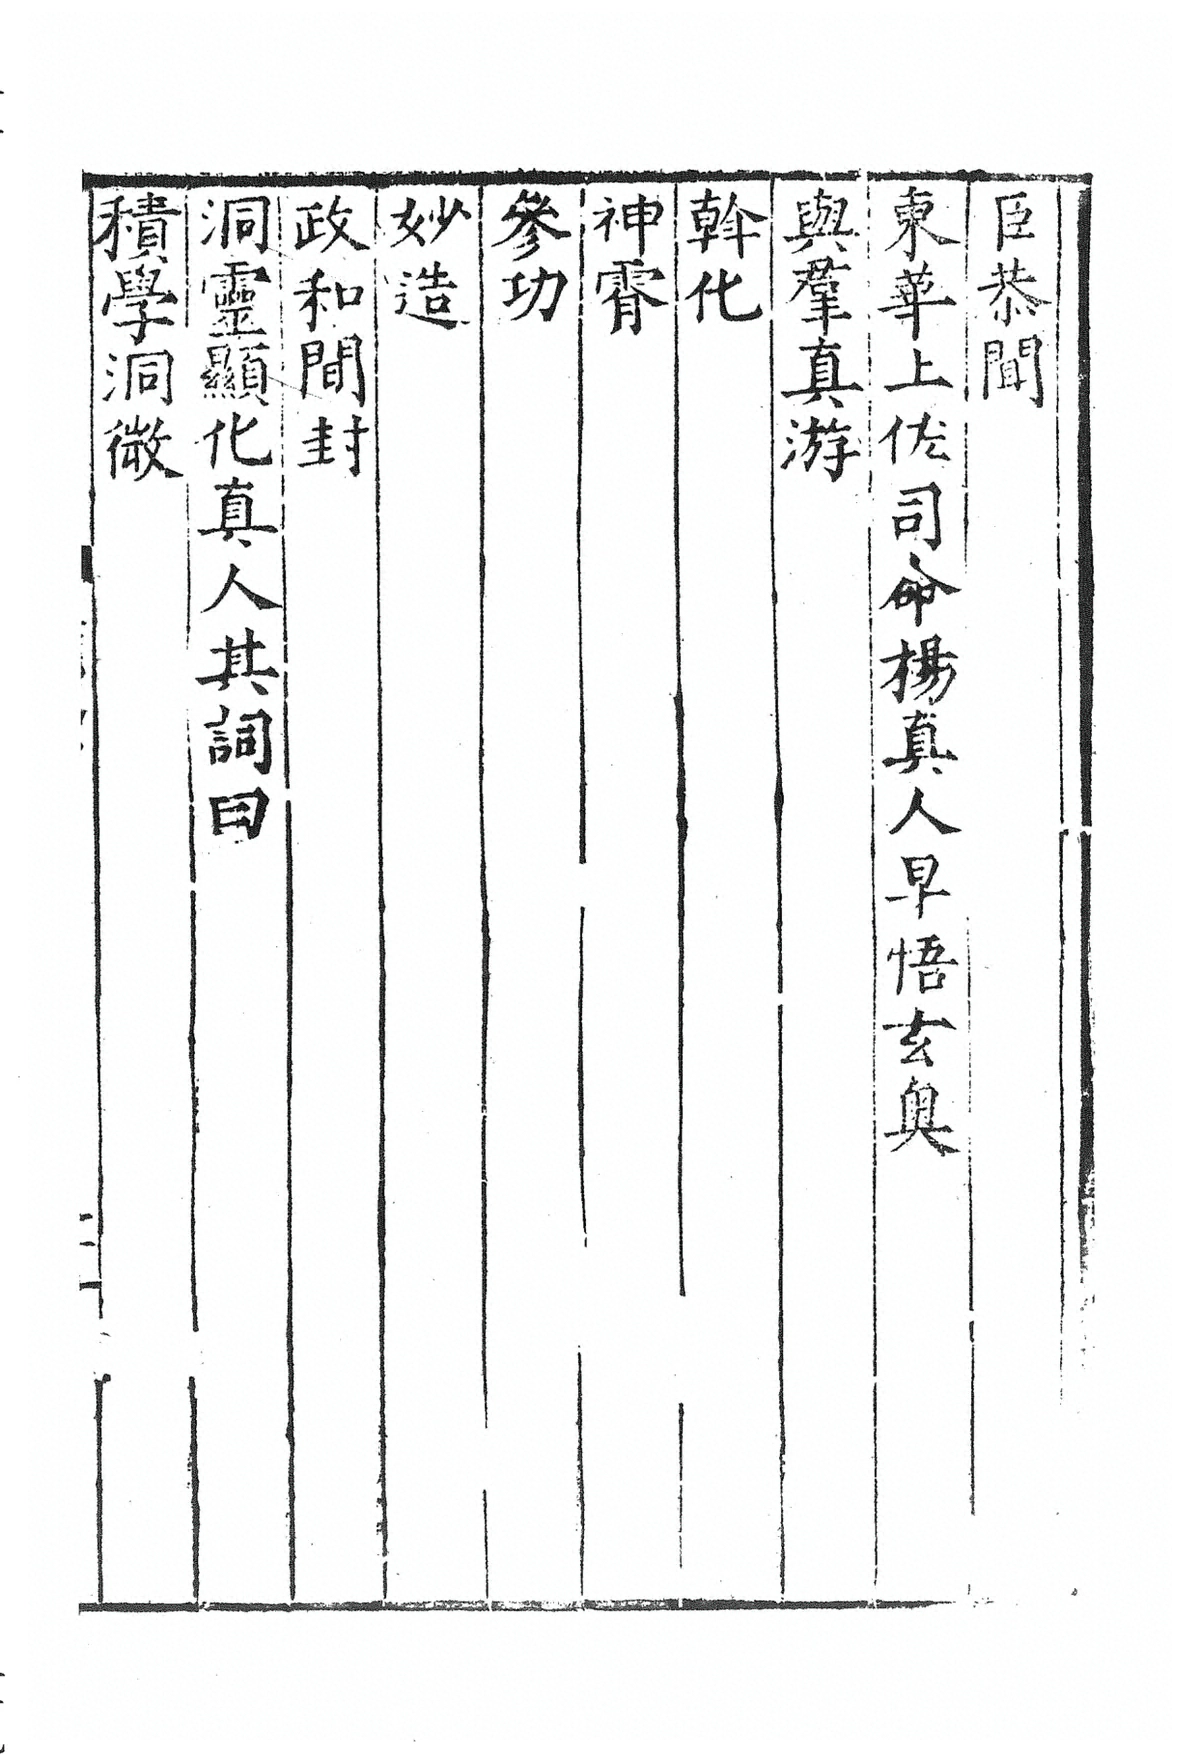 臣恭聞
東華上佐司命楊真人早悟玄奧
與羣真游
斡化
神霄
參功
妙造
政和間封
洞靈顯化真人其詞曰
積學洞微